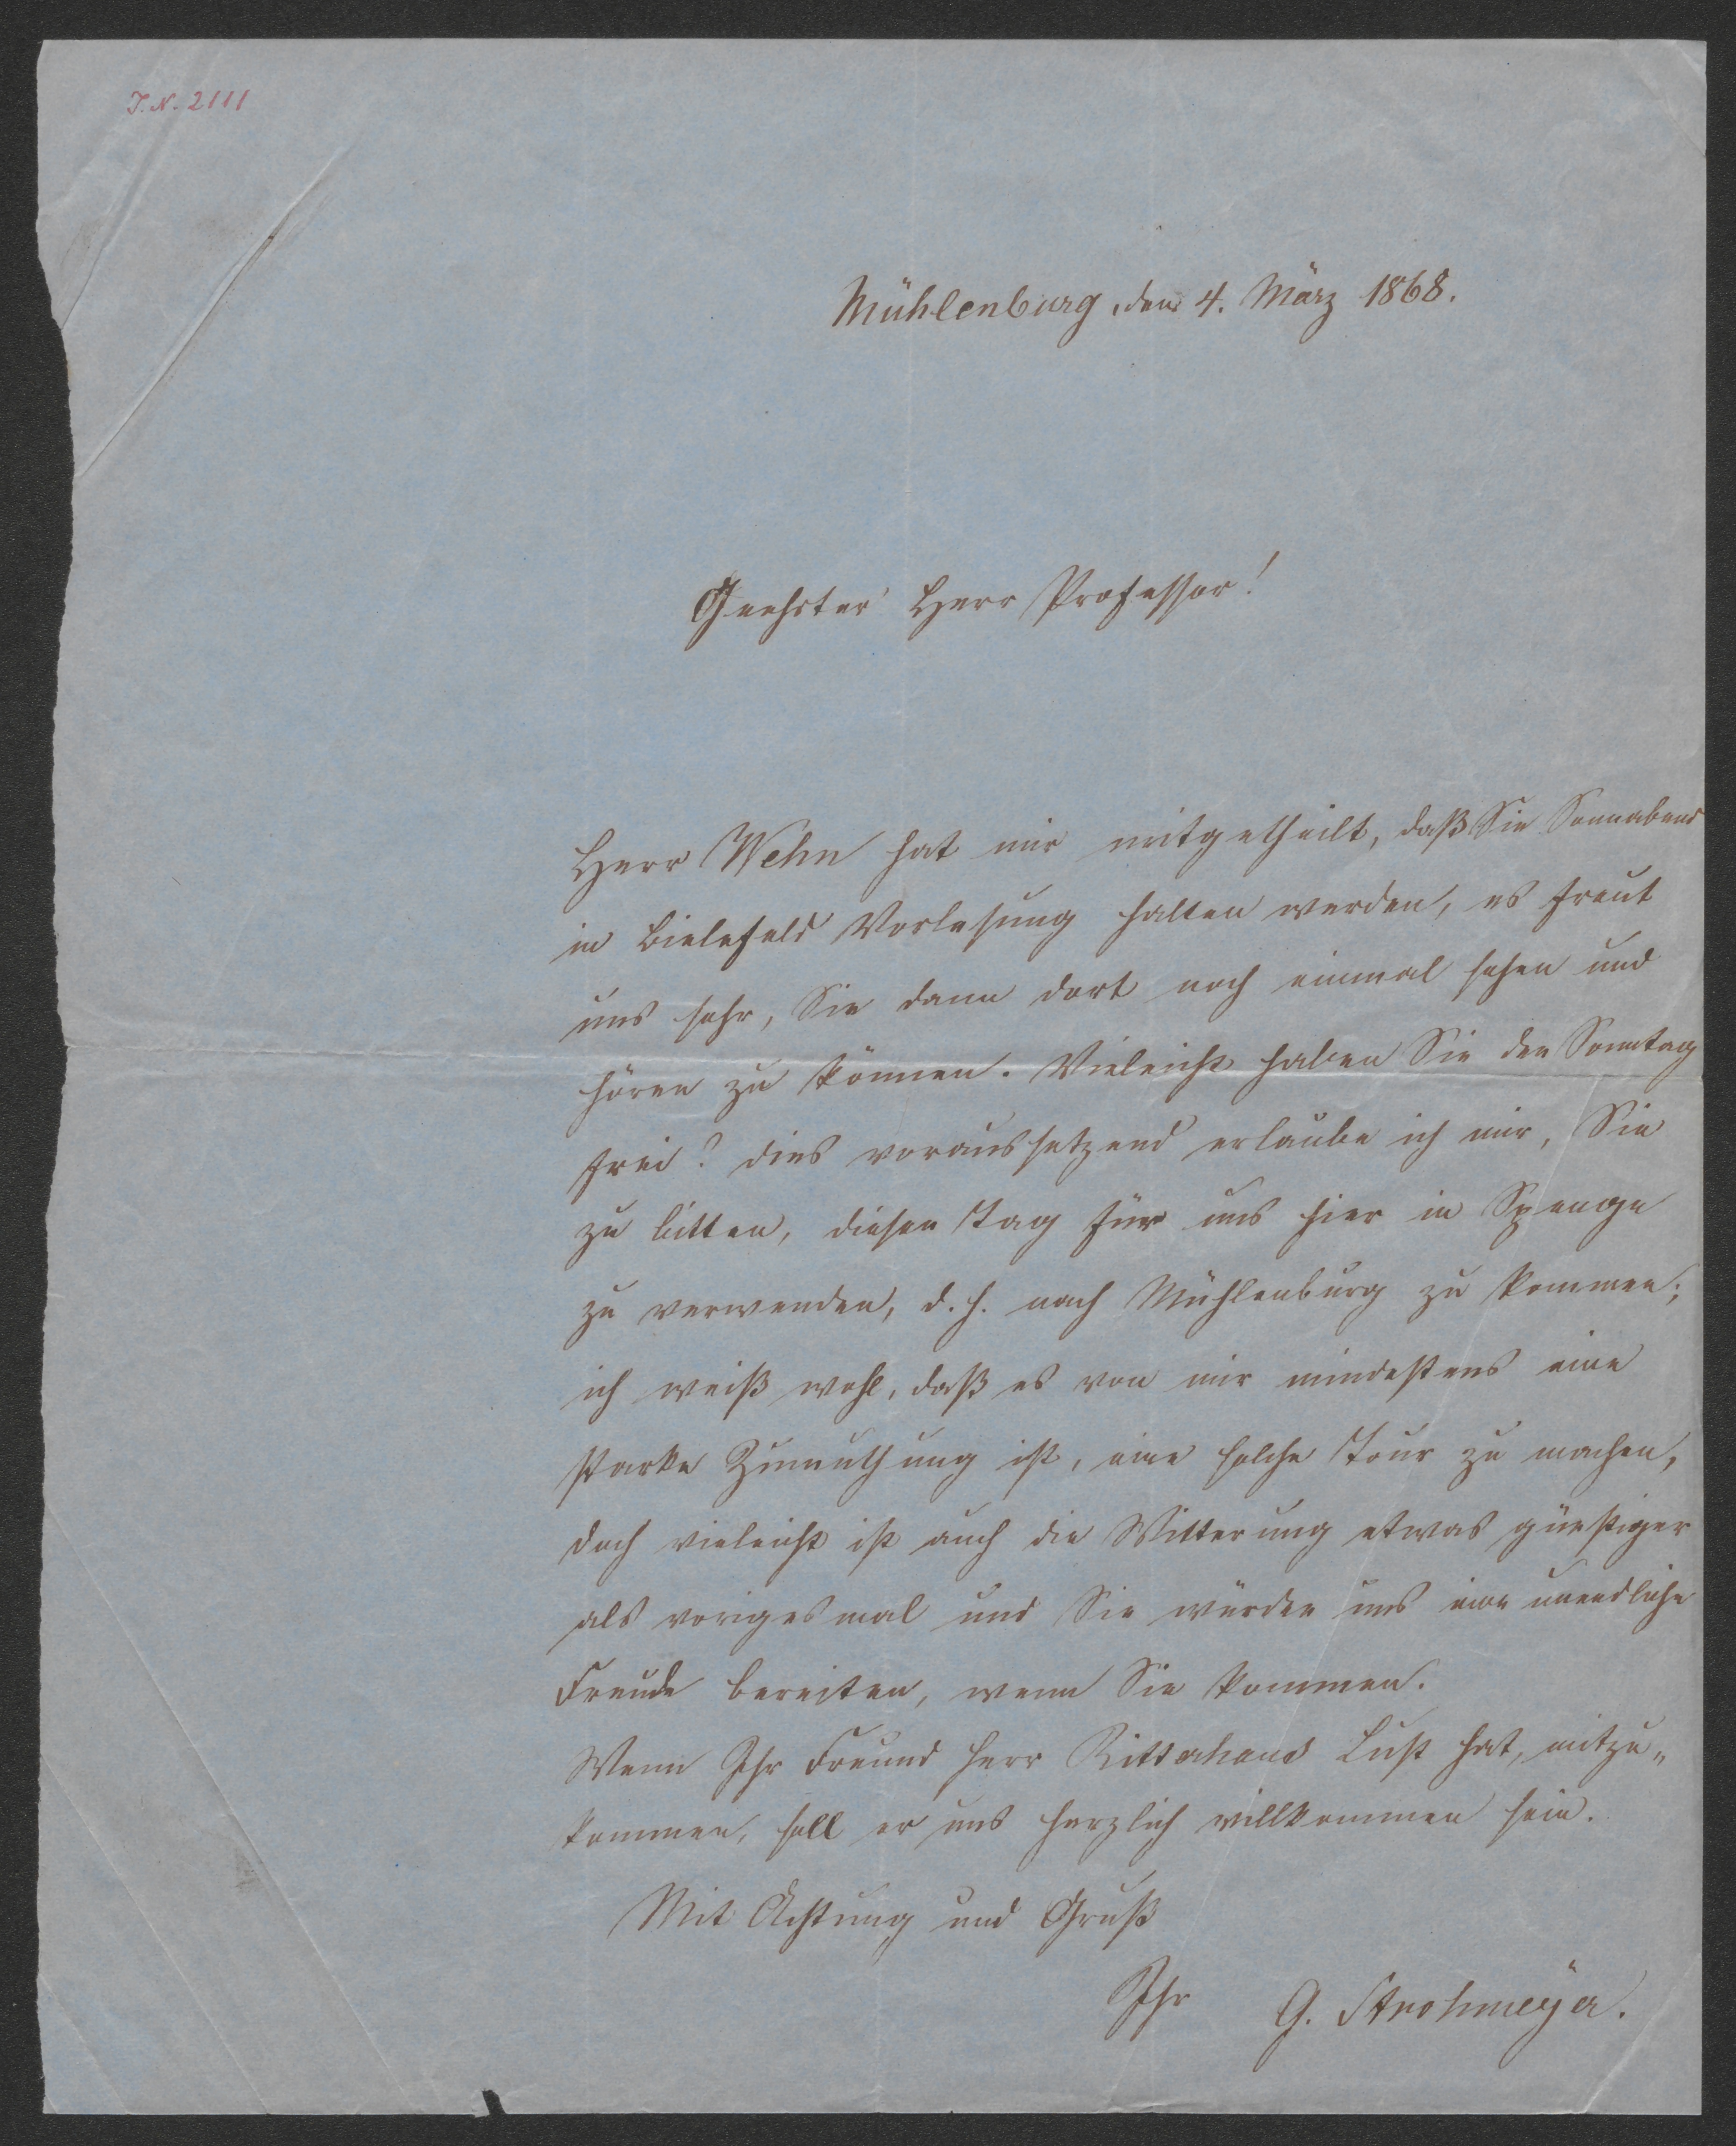 J.N. 2111
Mühlenburg, den 4. März 1868.
Geehrter Herr Professor!
Herr Wehn hat mir mitgetheilt, daß Sie Sonnabend
in Bielefeld Vorlesung halten werden, es freut
uns sehr, Sie dann dort noch einmal sehen und
hören zu können. Vieleicht haben Sie den Sonntag
frei? dies voraussetzend erlaube ich mir, Sie
zu bitten, diesen Tag für uns hier in Spenge
zu verwenden, d. h. nach Mühlenburg zu kommen;
ich weiß wohl, daß es von mir mindestens eine
starke Zumuthung ist, eine solche Tour zu machen,
doch vieleicht ist auch die Witterung etwas günstiger
als voriges mal und Sie würden uns eine unendliche
Freude bereiten, wenn Sie kommen.
Wenn Ihr Freund Herr Rittershaus Lust hat, mitzu„
kommen, soll er uns herzlich willkommen sein.
Mit Achtung und Gruß
Ihr G. Strohmeÿer.